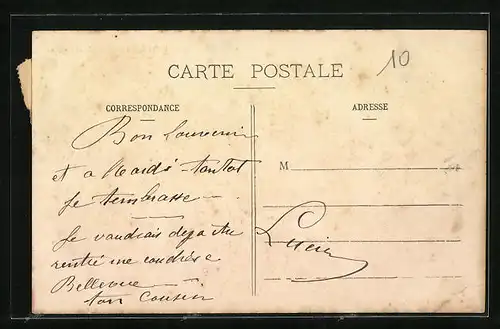 10
CARTE POSTALE
CORRESPONDANCE
ADRESSE
Bon Souvenir
et a Mardi tantot
Je tembrasse
M
Je voudrais deja être
rentré me
Bellevue
ton Cousin
Lucien